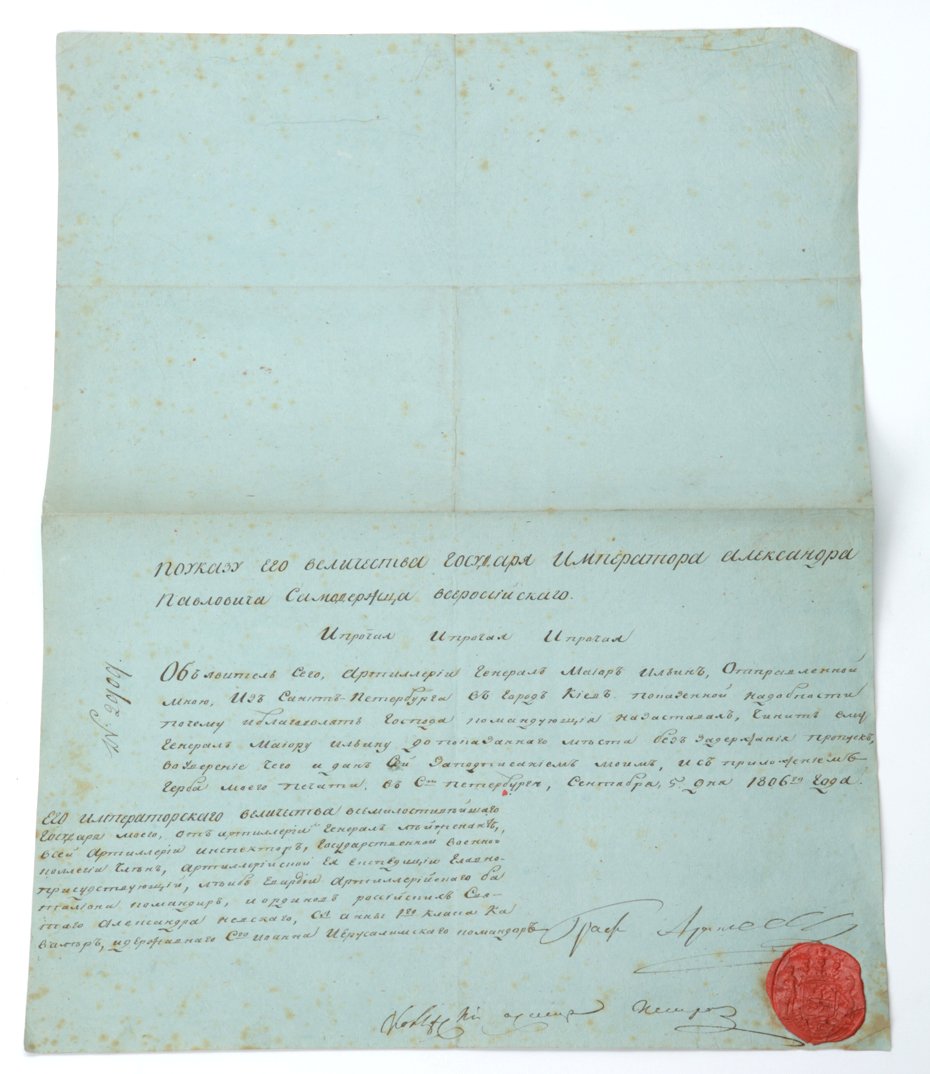 По указу ЕГО величества Государя Императора Александра
Павловича Самодержца всероссійскаго.
И прочая И прочая И прочая
Объявитель Сего, Артиллеріи Генералъ Маіоръ Ильинъ, Отправленной
мною, Изъ Санктъ-Петербурга въ городъ Кіевъ по казенной надобности
почему и благоволятъ Господа командующія на заставахъ, Чинить ему
Генералъ Маіору Ильину до показаннаго мѣста безъ задержанія пропускъ,
во увереніе чего и данъ Сей За подписаніемъ моимъ, и съ приложеніемъ
Герба моего печати. въ С: петербурге, Сентября, 5 дня 1806го Года.
№:
ЕГО императорскаго величества всемилостивѣйшаго
Государя моего, отъ артиллеріи Генералъ лѣйтенантъ,
всей Артиллеріи инспекторъ, Государственной военной
коллегіи Члѣнъ, Артиллерійской Ея експедиціи Главно-
присудствующій, лѣибъ Гвардіи Артиллерійскаго ба
таліона командиръ, и орденовъ россійскихъ Свя-
таго Александра невскаго, Св: анны 1го класса Ка
валѣръ, и державнаго Сто иоанна Иерусалимскаго командоръ
Графъ